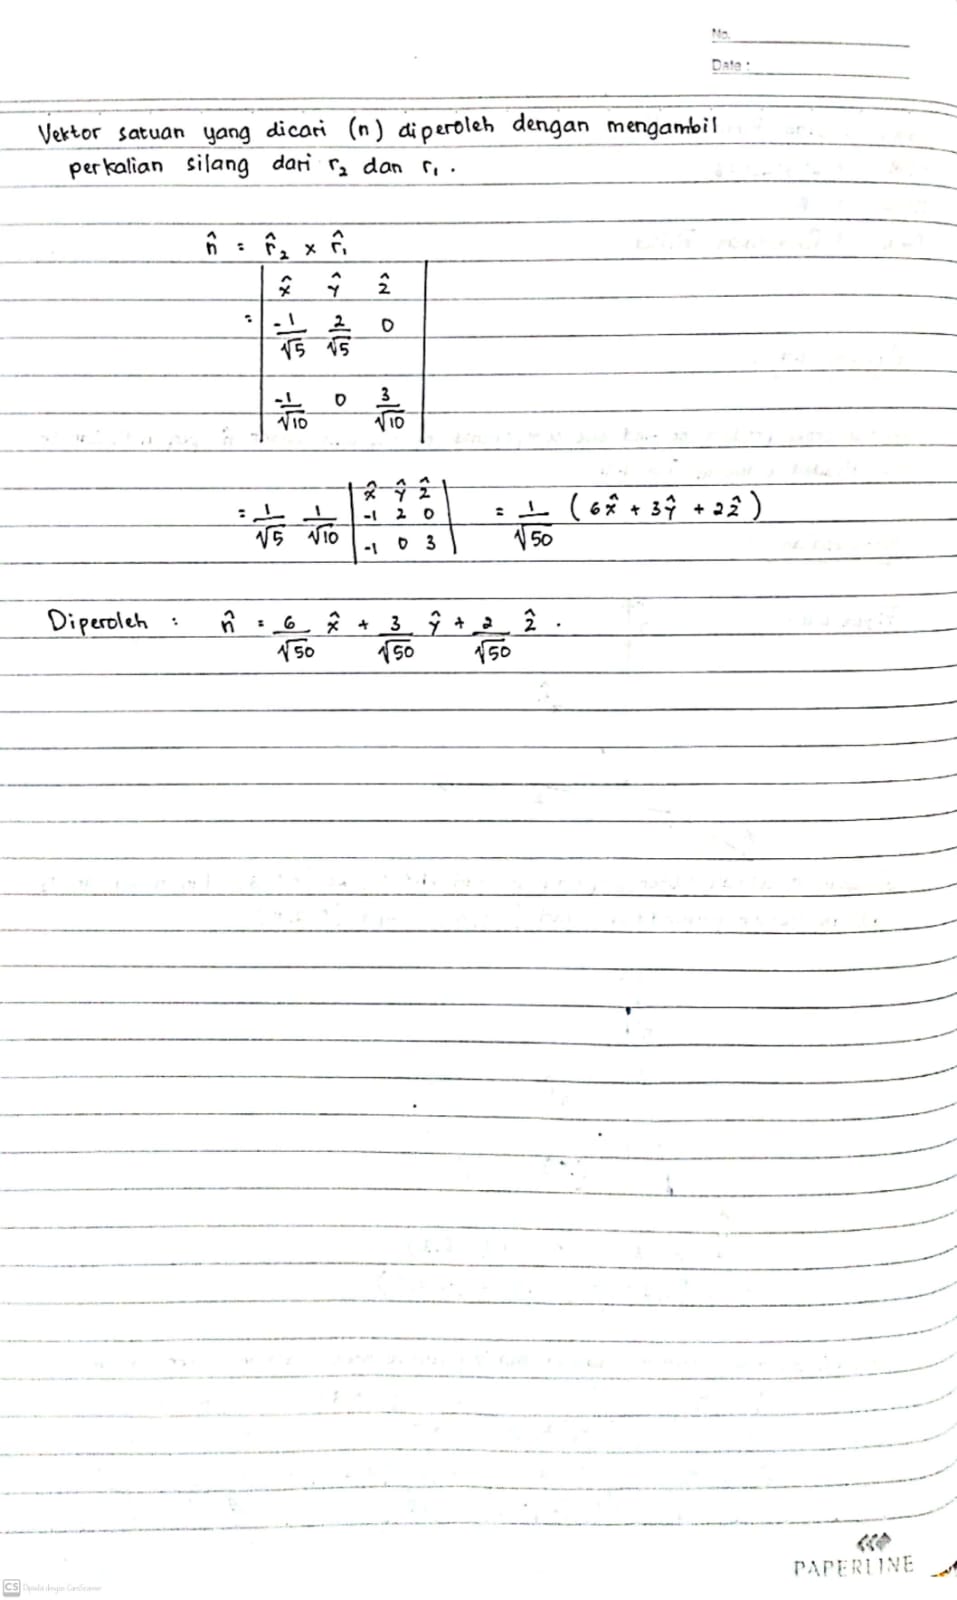 No.
Date :
Vektor satuan yang dicari (n) diperoleh dengan mengambil
perkalian silang dari r₂ dan r₁ .
n̂ = r̂₂ × r̂₁
= | x̂ ŷ ẑ |
| -1/√5 2/√5 0 |
| -1/√10 0 3/√10 |
= 1/√5 1/√10 | x̂ ŷ ẑ | -1 2 0 | -1 0 3 | = 1/√50 ( 6x̂ + 3ŷ + 2ẑ )
Diperoleh : n̂ = 6/√50 x̂ + 3/√50 ŷ + 2/√50 ẑ .
PAPERLINE
CS Dipindai dengan CamScanner